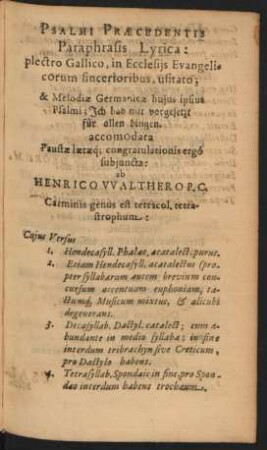 PSALMI PRÆCEDENTIS
Paraphrasis Lyrica:
plectro Gallico, in Ecclesijs Evangeli-
corum sincerioribus, usitato;
& Melodiæ Germanicæ hujus ipsius
Psalmi; Ich hab mir vorgesetzt
für allen dingen.
accomodata
Faustæ lætæq; congratulationis ergô
subjuncta:
ab
HENRICO VVALTHERO P. C.
Carminis genus est tetracol. tetra-
strophum:
Cujus Versus
1. Hendecasyll. Phalæ, acatalect. purus.
2. Etiam Hendecasyll. acatalectus (pro-
pter syllabarum autem brevium con-
cursum accentuum euphoniam, ta-
ctumq́; Musicum mixtus, & alicubi
degenerans.
3. Decasyllab. Dactyl. catalect; cum a-
bundante in medio syllaba; in fine
interdum tribrachyn sive Creticum,
pro Dactylo habens.
4. Tetrasyllab. Spondaic in fine, pro Spon-
dæo interdum habens trochæum.